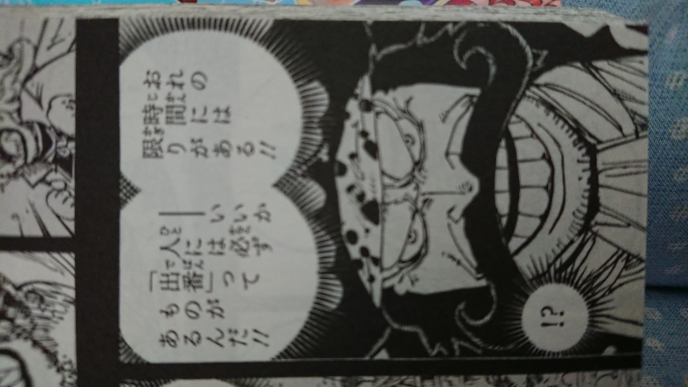 おれの
時間には
限りがある!!
―いいか
人には必ず
「出番」って
ものが
あるんだ!!
!?